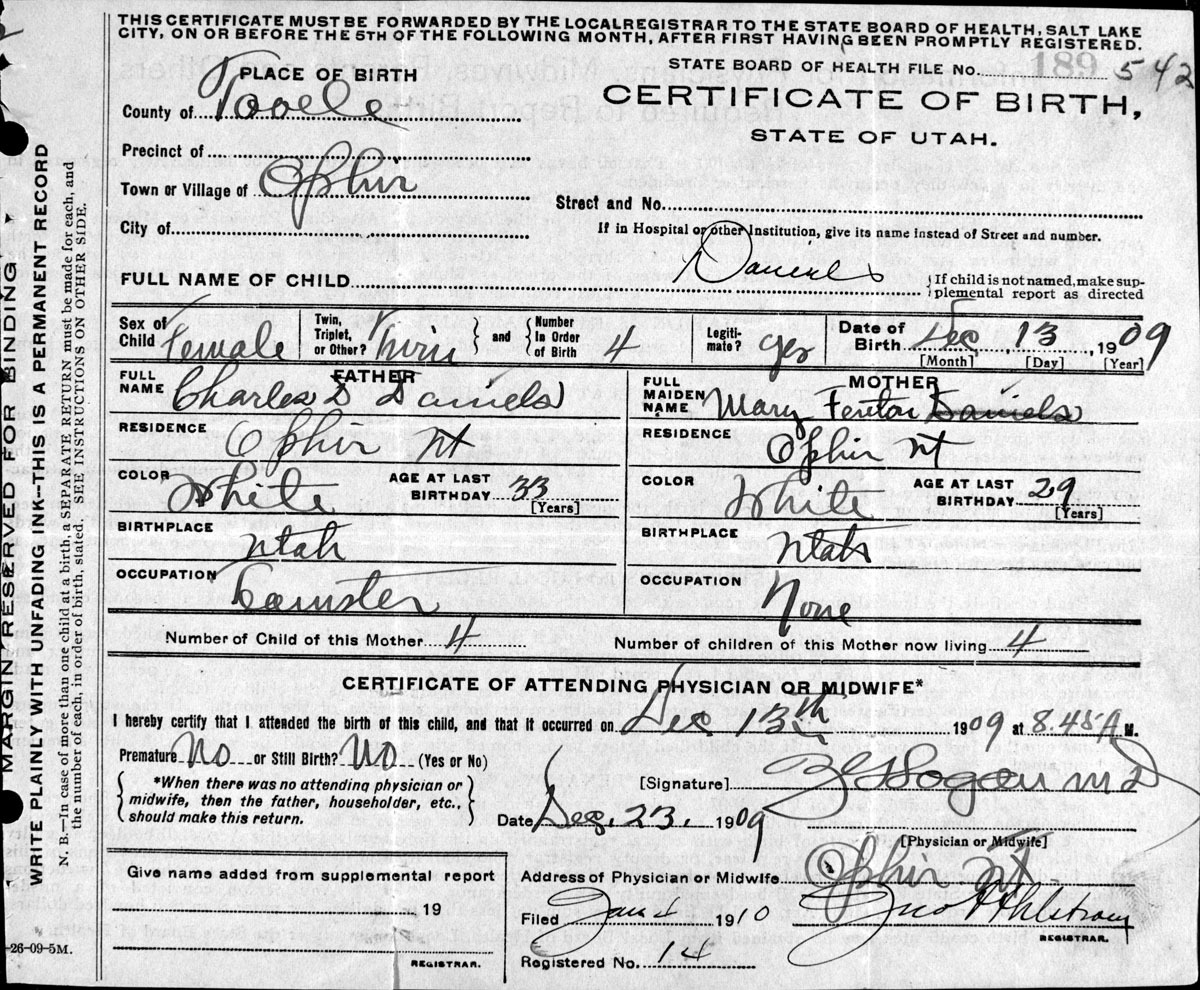 THIS CERTIFICATE MUST BE FORWARDED BY THE LOCAL REGISTRAR TO THE STATE BOARD OF HEALTH, SALT LAKE
CITY, ON OR BEFORE THE 5TH OF THE FOLLOWING MONTH, AFTER FIRST HAVING BEEN PROMPTLY REGISTERED.
PLACE OF BIRTH
STATE BOARD OF HEALTH FILE NO. 189 542
County of Tooele
CERTIFICATE OF BIRTH,
STATE OF UTAH.
Precinct of
Town or Village of Ophir
Street and No.
City of
If in Hospital or other Institution, give its name instead of Street and number.
FULL NAME OF CHILD Daniels
{If child is not named, make sup-
plemental report as directed
Sex of Child Female
Twin, Triplet, or Other? Twin } and { Number In Order of Birth 4
Legiti-mate? yes
Date of Birth Dec 13, 1909
[Month] [Day] [Year]
FATHER
FULL NAME Charles D Daniels
MOTHER
FULL MAIDEN NAME Mary Fenton Daniels
RESIDENCE Ophir Ut
RESIDENCE Ophir Ut
COLOR White AGE AT LAST BIRTHDAY 33 [Years]
COLOR White AGE AT LAST BIRTHDAY 29 [Years]
BIRTHPLACE Utah
BIRTHPLACE Utah
OCCUPATION
OCCUPATION None
Number of Child of this Mother 4
Number of children of this Mother now living 4
CERTIFICATE OF ATTENDING PHYSICIAN OR MIDWIFE*
I hereby certify that I attended the birth of this child, and that it occurred on Dec 13th 1909 at 8.45 A M.
Premature No or Still Birth? No (Yes or No)
*When there was no attending physician or
midwife, then the father, householder, etc.,
should make this return.
[Signature] M D
Date Dec. 23. 1909
[Physician or Midwife]
Give name added from supplemental report
19
REGISTRAR.
Address of Physician or Midwife Ophir Ut
Filed Jan 4 1910 Jno Ahlstrom
REGISTRAR.
Registered No. 14
26-09-5M.
MARGIN RESERVED FOR BINDING
WRITE PLAINLY WITH UNFADING INK--THIS IS A PERMANENT RECORD
N. B.—In case of more than one child at a birth, a SEPARATE RETURN must be made for each, and
the number of each, in order of birth, stated. SEE INSTRUCTIONS ON OTHER SIDE.